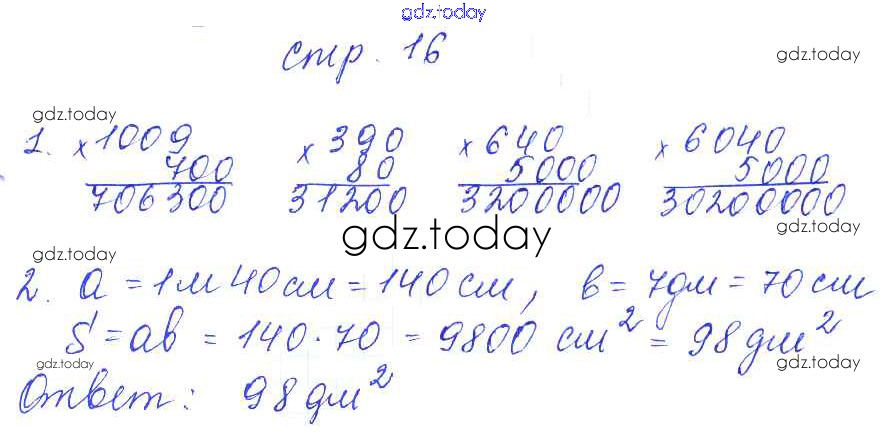 gdz.today
стр. 16
gdz.today
gdz.today
1. × 1009 × 390 × 640 × 6040
700 80 5000 5000
706300 31200 3200000 30200000
gdz.today
gdz.today
gdz.today
2. a = 1м 40см = 140 см, в = 7дм = 70 см
S = ab = 140 · 70 = 9800 см² = 98 дм²
gdz.today
gdz.today
Ответ: 98 дм²